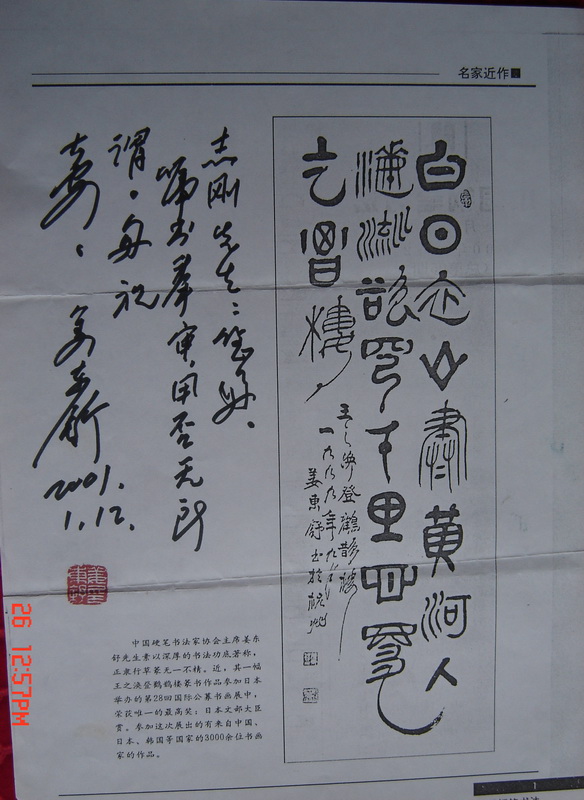 名家近作
白日依山盡黃河入
海流欲窮千里目更
上一層樓
王之渙登鸛鵲樓
一九九九年九月
姜東舒書於杭州
志刚先生:您好。
书奉审,用否无所
谓。匆祝
安。
姜东舒
2001.
1.12.
中国硬笔书法家协会主席姜东
舒先生素以深厚的书法功底著称,
正隶行草篆无一不精。近,其一幅
王之涣登鹳鹤楼篆书作品参加日本
举办的第28回国际公募书画展中,
荣获唯一的最高奖:日本文部大臣
赏。参加这次展出的有来自中国、
日本、韩国等国家的3000余位书画
家的作品。
1
26 12:57PM